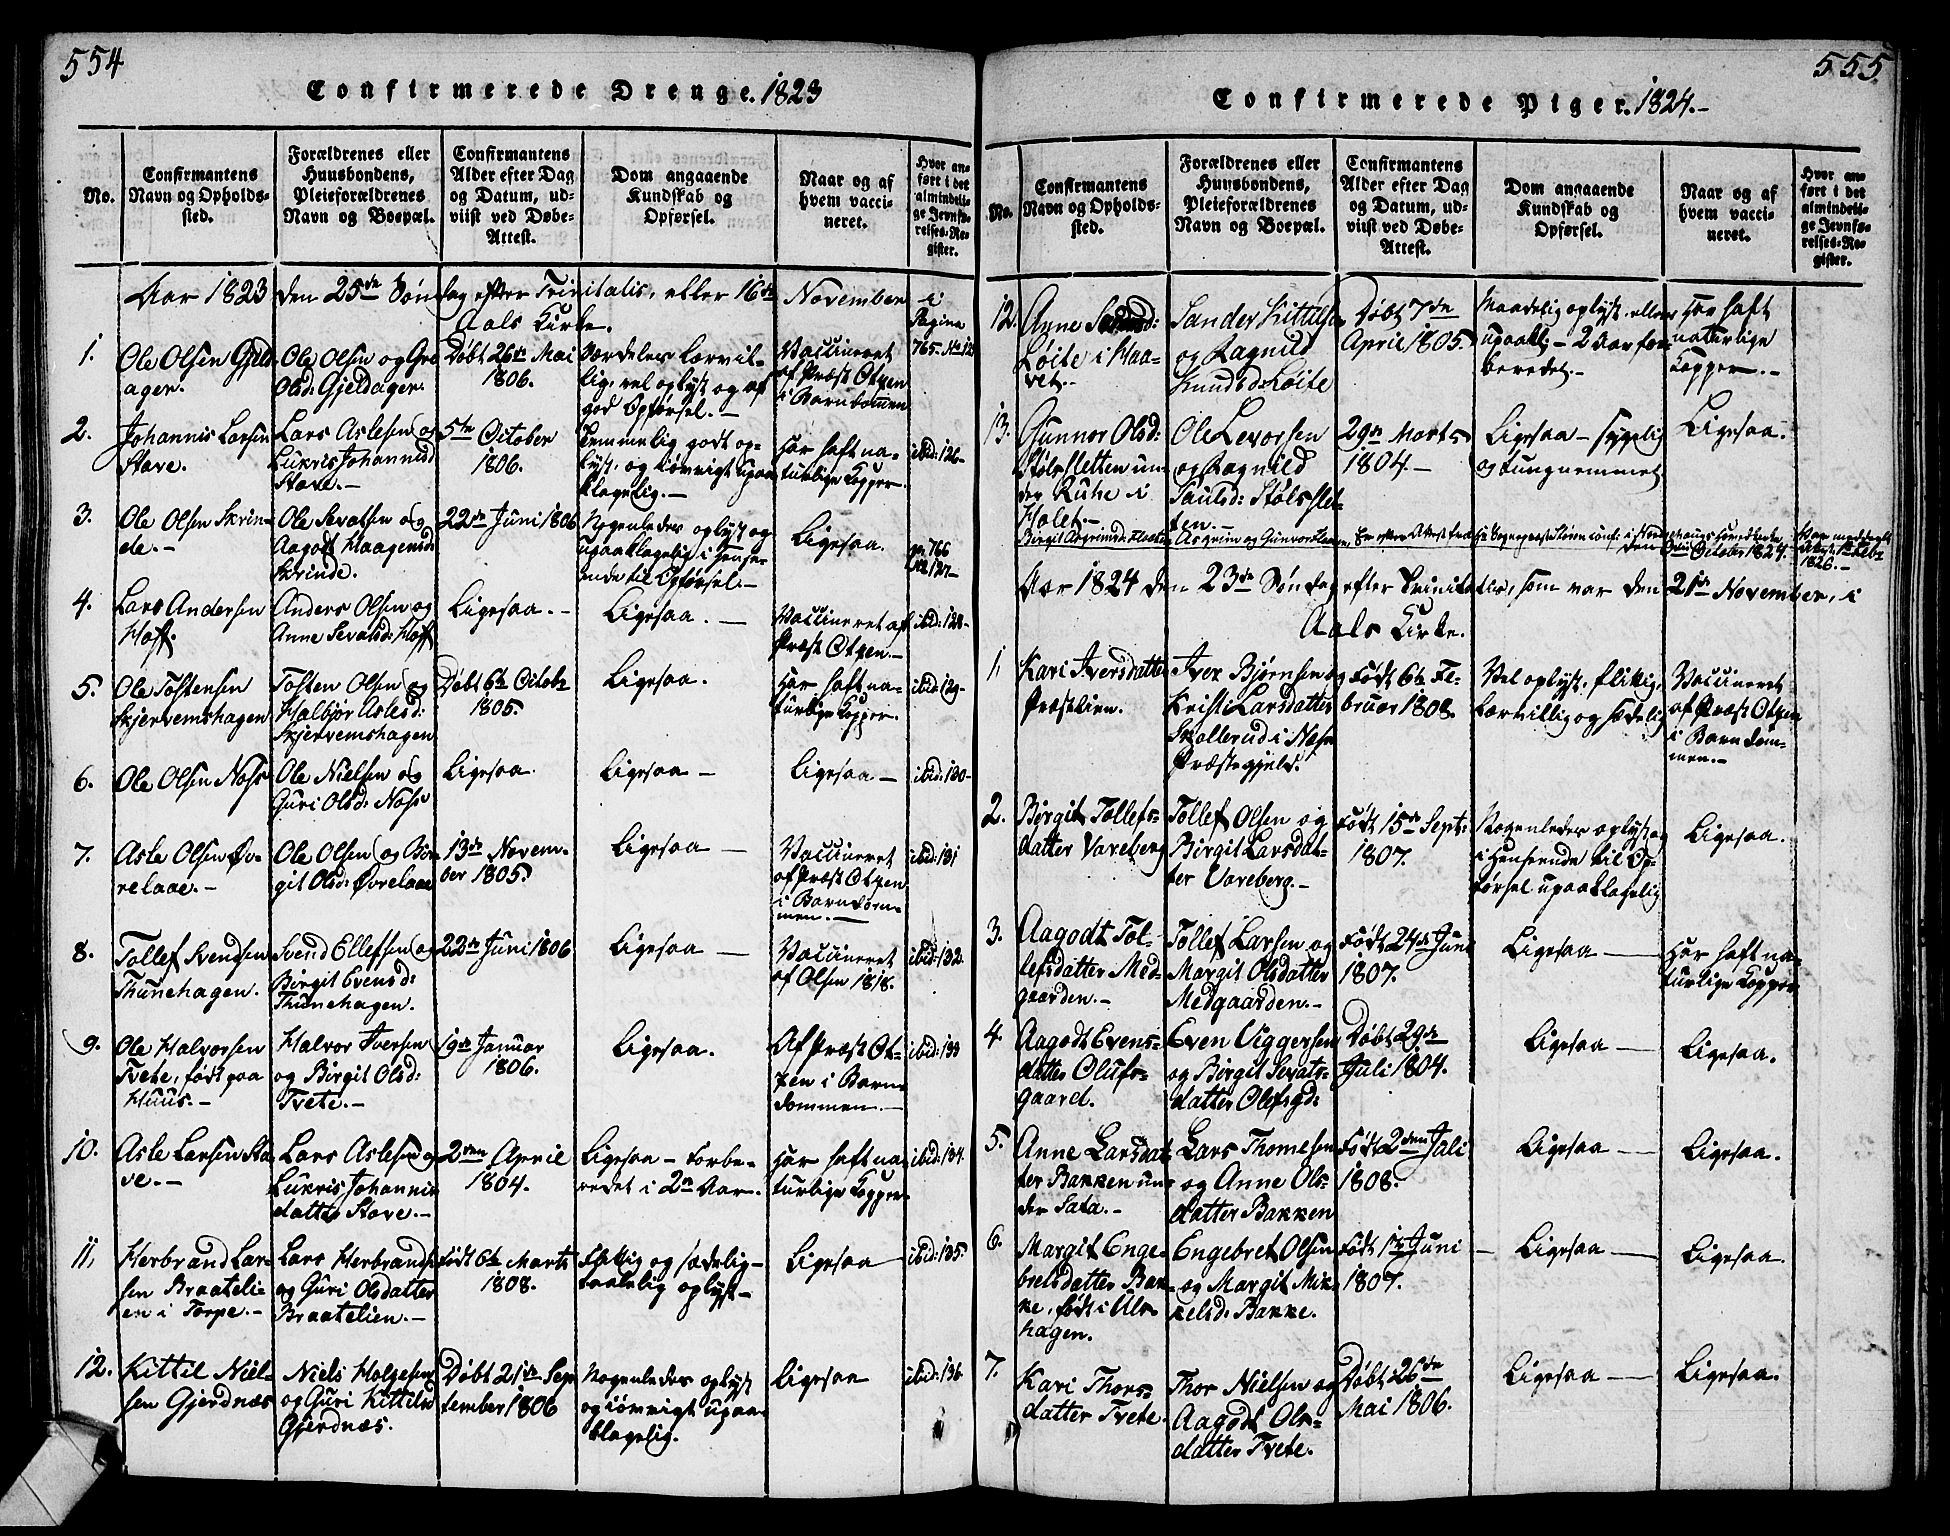 554
Confirmerede Drenge. 1823
No.
Confirmantens
Navn og Opholds-
sted.
Forældrenes eller
Huusbondens,
Pleieforældrenes
Navn og Boepæl.
Confirmantens
Alder efter Dag
og Datum, ud-
viist ved Døbe-
Attest.
Dom angaaende
Kundskab og
Opførsel.
Naar og af
hvem vacci-
neret.
Hvor an-
ført i det
almindeli-
ge Jevnfø-
relses-Re-
gister.
Aar 1823 den 25de Søndag efter Trinitatis, eller 16de November i
Aals Kirke.
1.
Ole Olsen Gjeld-
ager.
Ole Olsen og Gro
Olsd: Gjeldager.
Døbt 26de Mai
1806.
Særdeles lærvil-
lig, vel oplyst og af
god Opførsel.-
Vaccineret
af Præst Otzen
i Barndommen
Pagina
765. No 125
2.
Johannis Larsen
Stave.
Lars Aslesen og
Lukris Johannisd
Stave.-
5te October
1806.
Temmelig godt op-
lyst, og iøvrigt upaa-
klagelig.-
Har haft na-
turlige Kopper.
ibid: 126-
3.
Ole Olsen Skrin-
de.-
Ole Sevatsen og
Aagodt Haagensd:
Skrinde.
22de Juni 1806
Nogenledes oplyst og
upaaklagelig i Hense-
ende til Opførsel.-
Ligesaa.
pa: 766
No 127-
4.
Lars Andersen
Hoff.
Anders Olsen og
Anne Sevatsd: Hoff
Ligesaa.-
Ligesaa.-
Vaccineret af
Præst Otzen.-
ibid: 128-
5.
Ole Tostensen
Skjervemshagen
Tosten Olsen og
Halbjør Aslesd:
Skjervemshagen
Døbt 6te Octob:
1805.
Ligesaa.
Har haft na-
turlige Kopper.
ibid: 129-
6.
Ole Olsen Noss
Ole Nielsen og
Guri Olsd: Noss
Ligesaa.
Ligesaa -
Ligesaa -
ibid: 130-
7.
Asle Olsen Øv-
relaae.-
Ole Olsen og Bir-
git Olsd: Øvrelaae
13de Novem-
ber 1805.
Ligesaa -
Vaccineret
af Præst Otzen
i Barndom-
men.-
ibid: 131
8.
Tollef Svendsen
Thunehagen.
Svend Ellefsen og
Birgit Evensd:
Thunehagen.
22de Juni 1806
Ligesaa -
Vaccineret
af Olsen 1818.
ibid: 132
9.
Ole Halvorsen
Tvete, født paa
Huus.-
Halvor Iversen
og Birgit Olsd:
Tvete.-
19de Januar
1806.
Ligesaa.
Af Præst Ot-
zen i Barn-
dommen.-
ibid: 133
10.
Asle Larsen Sta-
ve.-
Lars Aslesen og
Lukris Johannis
datter Stave.-
2den April
1804.
Ligesaa - Forbe-
redet i 2de Aar.-
Har haft na-
turlige Kopper
ibid: 134.
11.
Herbrand Lar-
sen Braateli-
en i Torpe.-
Lars Herbrands:
og Guri Olsdatter
Braatelien.-
Født 6te Marts
1808.
Flittig og sædelig-
taalelig oplyst-
Ligesaa
ibid: 135.
12.
Kittil Niel-
sen Gjerdnæs
Niels Holgesen
og Guri Kittilsd
Gjerdnæs.
Døbt 21de Sep
tember 1806
Nogenledes oplyst
og iøvrigt upaa-
klagelig.
Ligesaa
ibid: 136
555
Confirmerede Piger. 1824.-
No.
Confirmantens
Navn og Opholds-
sted.
Forældrenes eller
Huusbondens,
Pleieforældrenes
Navn og Boepæl.
Confirmantens
Alder efter Dag
og Datum, ud-
viist ved Døbe-
Attest.
Dom angaaende
Kundskab og
Opførsel.
Naar og af
hvem vacci-
neret.
Hvor an-
ført i det
almindeli-
ge Jevnfø-
relses-Re-
gister.
12.
Anne
Løite i Haa-
vet.-
Sander Kittilsen
og Ragnild
Knudsd: Løite
Døbt 7de
April 1805.
Maadelig oplyst, ellers
upaakl: - 2 Aar for-
beredet.-
Har haft
naturlige
Kopper.-
13.
Gunnor Olsd:
Stølssletten un-
der Ruhe i
Holet.-
Ole Levorsen
og Ragnild
Saulsd: Stølsslet-
ten.-
29de Marts
1804.-
Ligesaa - sygelig
og tungnemmet
Ligesaa.
Birgit Asgrimsd:
Asgrim og Gunvor
October 1824.
1826.-
Aar 1824 den 23de Søndag efter Trinitatis, som var den 21de November, i
Aals Kirke.
1.
Kari Iversdatter
Præstlien.
Iver Bjørnsen og
Kristi Larsdatter
Skollerud i Næss
Præstegjeld.
Født 6te Fe-
bruar 1808.
Vel oplyst, flittig,
lærvillig og sædelig
Vaccineret
af Præst Otzen
i Barndom-
men.-
2.
Birgit Tollefs-
datter Vareberg
Tollef Olsen og
Birgit Larsdat-
ter Vareberg.-
Født 15de Sept:
1807.
Nogenledes oplyst og
i Henseende til Op-
førsel upaaklagelig
Ligesaa.
3.
Aagodt Tol-
lefsdatter Med-
gaarden.-
Tollef Larsen og
Margit Olsdatter
Medgaarden.-
Født 24de Juni
1807.
Ligesaa -
Har haft na-
turlige Kopper
4.
Aagodt Evens-
datter Olufs-
gaard.
Even Viggersen
og Birgit Sevats-
datter Olefsgd:
Døbt 29de
Juli 1804.
Ligesaa -
Ligesaa.
5.
Anne Larsdat
ter Bakken un-
der Sata.-
Lars Thomesen
og Anne Ols-
datter Bakken
Født 2den Juli
1808.
Ligesaa -
Ligesaa.
6.
Margit Enge-
bretsdatter Bak-
ke, født i Uls-
hagen.
Engebret Olsen
og Margit Mik-
kelsd: Bakke.
Født 1ste Juni
1807.
- Ligesaa -
Ligesaa.
7.
Kari Thors-
datter Tvete.
Thor Nielsen og
Aagodt Ols-
datter Tvete.
Døbt 26de
Mai 1806.
Ligesaa -
Ligesaa.